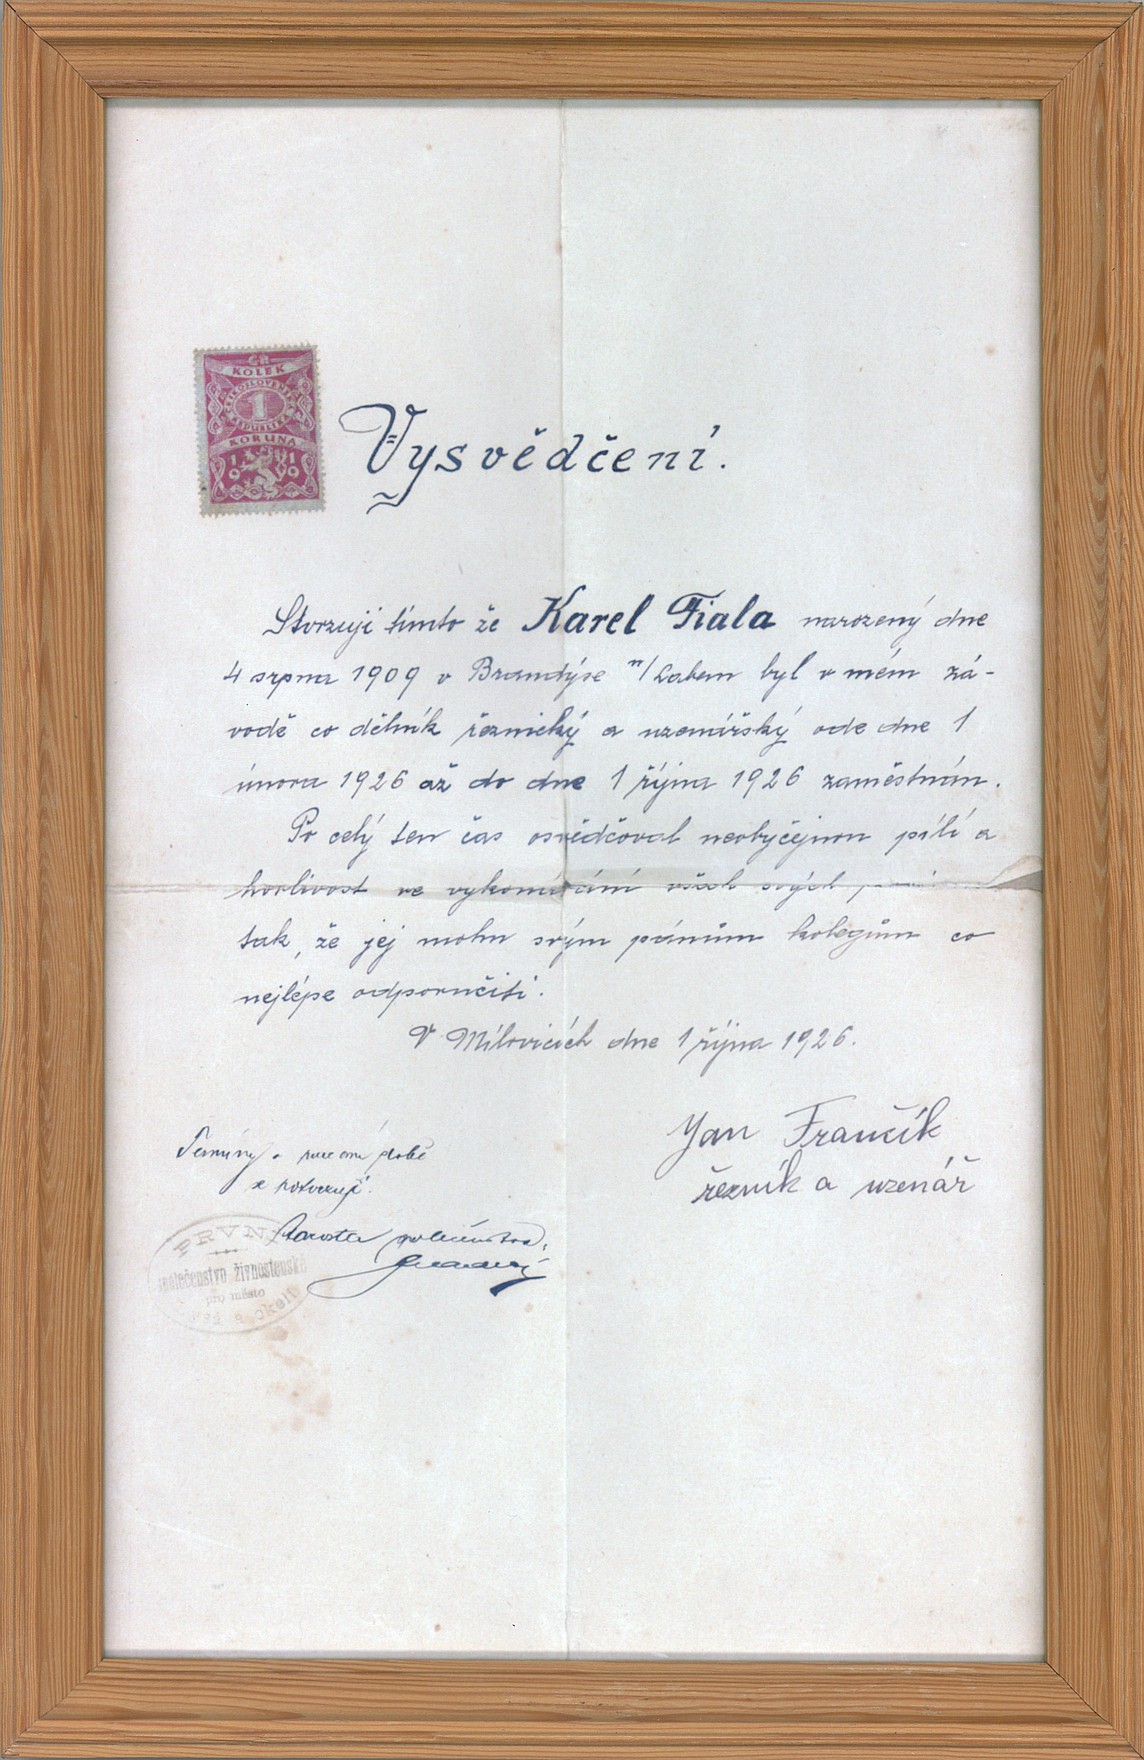 ČR
KOLEK
ČESKOSLOVENSKÁ
1
REPUBLIKA
KORUNA
1919
Vysvědčení.
Stvrzuji tímto že Karel Fiala narozený dne
4 srpna 1909 v Brandýse n/Labem byl v mém zá-
vodě co dělník řeznický a uzenářský ode dne 1
února 1926 až do dne 1 října 1926 zaměstnán.
Po celý ten čas osvědčoval neobyčejnou pílí a
horlivost ve vykonávání všech svých
tak, že jej mohu svým pánům kolegům co
nejlépe odporučiti.
V Milovicích dne 1 října 1926.
Jan Frančík
řezník a uzenář
době
se potvrzují.
starosta společenstva:
PRVNÍ
společenstvo živnostenské
pro město
a okolí